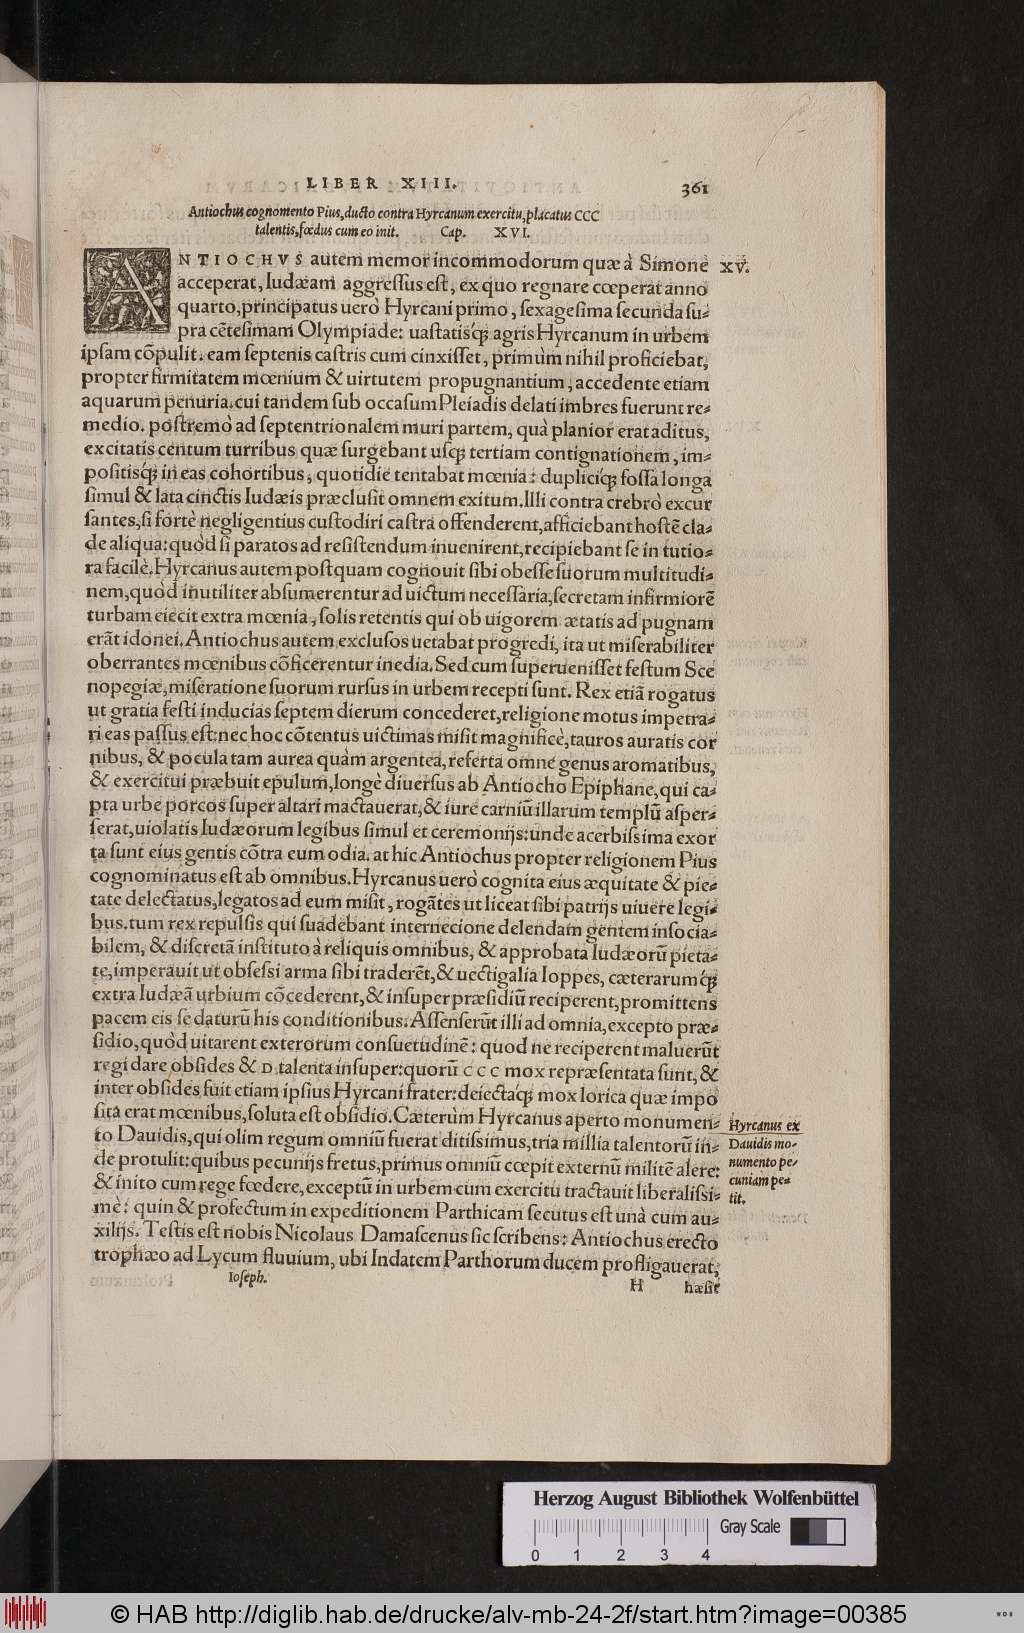 LIBER XIII. 361
Antiochus cognomento Pius, ducto contra Hyrcanum exercitu, placatus CCC
talentis, fœdus cum eo init. Cap. XVI.
ANTIOCHVS autem memor incommodorum quæ à Simone XV.
acceperat, Iudæam aggreſſus eſt, ex quo regnare cœperat anno
quarto, principatus uerò Hyrcani primo, ſexageſima ſecunda ſu-
pra cẽteſimam Olympiade: uaſtatisq́; agris Hyrcanum in urbem
ipſam cõpulit. eam ſeptenis caſtris cum cinxiſſet, primùm nihil proficiebat,
propter firmitatem mœnium & uirtutem propugnantium, accedente etiam
aquarum penuria. cui tandem ſub occaſum Pleiadis delati imbres fuerunt re-
medio. poſtremo ad ſeptentrionalem muri partem, quà planior erat aditus,
excitatis centum turribus quæ ſurgebant uſq; tertiam contignationem, im-
poſitisq́; in eas cohortibus, quotidie tentabat mœnia: dupliciq́; foſſa longa
ſimul & lata cinctis Iudæis præcluſit omnem exitum. Illi contra crebrò excur
ſantes, ſi fortè negligentius cuſtodiri caſtra offenderent, afficiebant hoſtẽ cla-
de aliqua: quòd ſi paratos ad reſiſtendum inuenirent, recipiebant ſe in tutio-
ra facilè. Hyrcanus autem poſtquam cognouit ſibi obeſſe ſuorum multitudi-
nem, quòd inutiliter abſumerentur ad uictum neceſſaria, ſecretam infirmiorẽ
turbam eiecit extra mœnia, ſolis retentis qui ob uigorem ætatis ad pugnam
erãt idonei. Antiochus autem excluſos uetabat progredi, ita ut miſerabiliter
oberrantes mœnibus cõficerentur inedia. Sed cum ſuperueniſſet feſtum Sce
nopegiæ, miſeratione ſuorum rurſus in urbem recepti ſunt. Rex etiã rogatus
ut gratia feſti inducias ſeptem dierum concederet, religione motus impetra-
ri eas paſſus eſt: nec hoc cõtentus uictimas miſit magnificè, tauros auratis cor
nibus, & pocula tam aurea quàm argentea, referta omne genus aromatibus,
& exercitui præbuit epulum, longè diuerſus ab Antiocho Epiphane, qui ca-
pta urbe porcos ſuper altari mactauerat, & iure carniũ illarum templũ aſper-
ſerat, uiolatis Iudæorum legibus ſimul et ceremonijs: unde acerbiſsima exor
ta ſunt eius gentis cõtra eum odia. at hic Antiochus propter religionem Pius
cognominatus eſt ab omnibus. Hyrcanus uerò cognita eius æquitate & pie-
tate delectatus, legatos ad eum miſit, rogãtes ut liceat ſibi patrijs uiuere legi-
bus. tum rex repulſis qui ſuadebant internecione delendam gentem inſocia-
bilem, & diſcretã inſtituto à reliquis omnibus, & approbata Iudæorũ pieta-
te, imperauit ut obſeſsi arma ſibi traderẽt, & uectigalia Ioppes, cæterarumq́;
extra Iudæã urbium cõcederent, & inſuper præſidiũ reciperent, promittens
pacem eis ſe daturũ his conditionibus. Aſſenſerũt illi ad omnia, excepto præ-
ſidio, quòd uitarent exterorum conſuetudinẽ: quod ne reciperent maluerũt
regi dare obſides & D. talenta inſuper: quorũ CCC mox repræſentata ſunt, &
inter obſides fuit etiam ipſius Hyrcani frater: deiectaq́; mox lorica quæ impo
ſita erat mœnibus, ſoluta eſt obſidio. Cæterùm Hyrcanus aperto monumen-
to Dauidis, qui olim regum omniũ fuerat ditiſsimus, tria millia talentorũ in-
de protulit: quibus pecunijs fretus, primus omniũ cœpit externũ militẽ alere:
& inito cum rege fœdere, exceptũ in urbem cum exercitu tractauit liberaliſsi-
mè: quin & profectum in expeditionem Parthicam ſecutus eſt unà cum au-
xilijs. Teſtis eſt nobis Nicolaus Damaſcenus ſic ſcribens: Antiochus erecto
trophæo ad Lycum fluuium, ubi Indatem Parthorum ducem profligauerat,
Hyrcanus ex
Dauidis mo-
numento pe-
cuniam pe-
tit.
Ioſeph. H hæſit
Herzog August Bibliothek Wolfenbüttel
Gray Scale
0 1 2 3 4
© HAB http://diglib.hab.de/drucke/alv-mb-24-2f/start.htm?image=00385